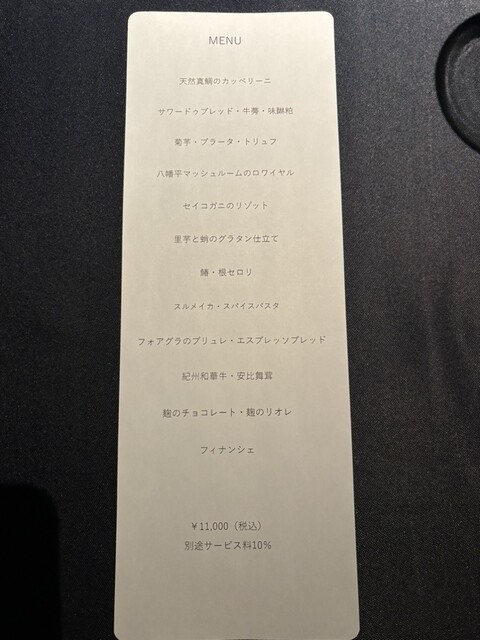 MENU
天然真鯛のカッペリーニ
サワードゥブレッド・牛蒡・味醂粕
菊芋・ブラータ・トリュフ
八幡平マッシュルームのロワイヤル
セイコガニのリゾット
里芋と蛸のグラタン仕立て
鰆・根セロリ
スルメイカ・スパイスパスタ
フォアグラのブリュレ・エスプレッソブレッド
紀州和華牛・安比舞茸
麹のチョコレート・麹のリオレ
フィナンシェ
￥11,000（税込）
別途サービス料10%